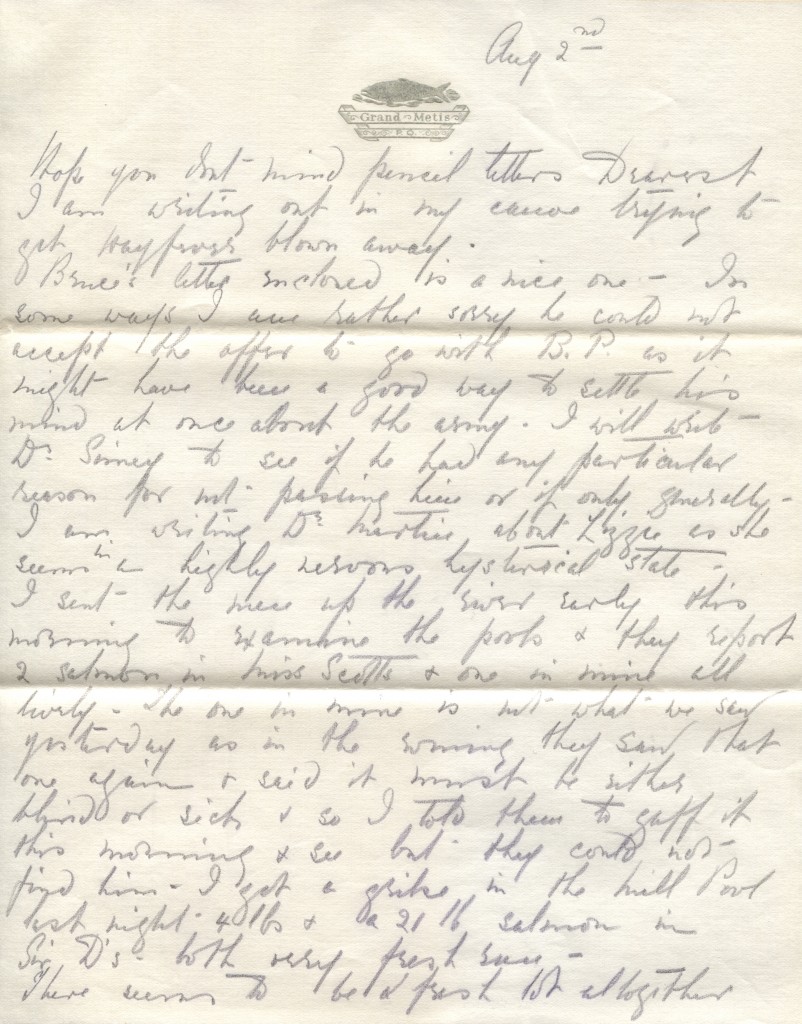 Aug 2nd
Grand Metis
P.Q.
Hope you dont mind pencil letters Dearest
I am writing out in my canoe trying to
get Hayfever blown away.
Bruce's letter enclosed is a nice one - In
some ways I am rather sorry he could not
accept the offer to go with B.P. as it
might have been a good way to settle his
mind at once about the army. I will write
Dr to see if he had any particular
reason for not passing him or if only generally -
I am writing Dr Martin about Lizzie as she
seems in a highly nervous hysterical state -
I sent the men up the river early this
morning to examine the pools & they report
2 salmon in Miss Scotts & one in mine all
lively - The one in mine is not what we saw
yesterday as in the evening they saw that
one again & said it must be either
blind or sick & so I told them to gaff it
this morning & see but they could not
find him - I got a grilse in the Mill Pool
last night - 4 lbs & a 21 lb salmon in
Sir D's - both very fresh run -
There seems to be a fresh lot altogether